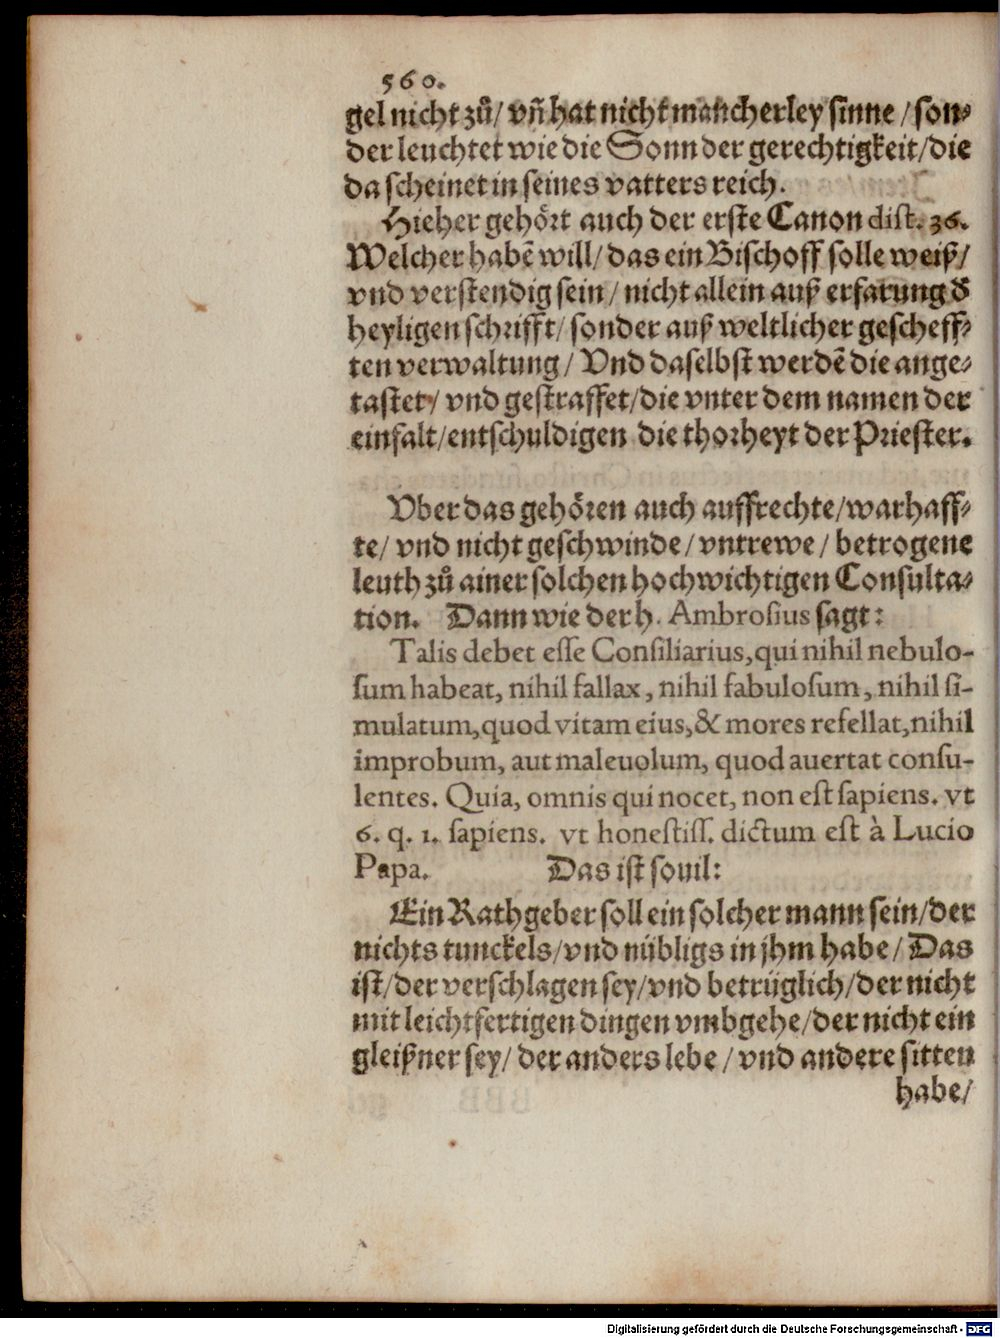 560.
gel nicht zů/ vñ hat nicht mancherley sinne / son⸗
der leuchtet wie die Sonn der gerechtigkeit/die
da scheinet in seines vatters reich.
Hieher gehört auch der erste Canon dist. 36.
Welcher habẽ will/ das ein Bischoff solle weiß/
vnd verstendig sein / nicht allein auß erfarung ď
heyligen schrifft/ sonder auß weltlicher gescheff⸗
ten verwaltung / Vnd daselbst werdẽ die ange⸗
tastet/ vnd gestraffet/die vnter dem namen der
einfalt/entschuldigen die thorheyt der Priester.
Vber das gehören auch auffrechte/warhaff⸗
te/ vnd nicht geschwinde/ vntrewe / betrogene
leuth zů ainer solchen hochwichtigen Consulta⸗
tion. Dann wie der h. Ambrosius sagt:
Talis debet esse Consiliarius, qui nihil nebulo-
sum habeat, nihil fallax, nihil fabulosum, nihil si-
mulatum, quod vitam eius, & mores refellat, nihil
improbum, aut maleuolum, quod auertat consu-
lentes. Quia, omnis qui nocet, non est sapiens. vt
6. q. 1. sapiens. vt honestiss. dictum est à Lucio
Papa. Das ist souil:
Ein Rathgeber soll ein solcher mann sein/der
nichts tunckels/vnd nübligs in jhm habe/ Das
ist/der verschlagen sey/vnd betrüglich/der nicht
mit leichtfertigen dingen vmbgehe/der nicht ein
gleißner sey/ der anders lebe / vnd andere sitten
habe/
Digitalisierung gefördert durch die Deutsche Forschungsgemeinschaft - DFG